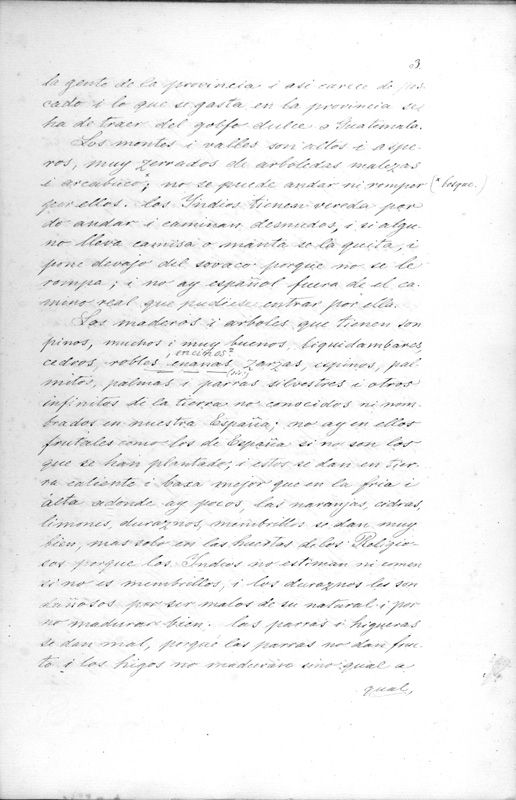 3
la gente de la provincia i asi carece de pes-
cado i lo que se gasta en la provincia se
ha de traer del golfo dulce a Guatemala.
Los montes i valles son altos i aspe-
ros, muy zerrados de arboledas malezas
i arcabuco*; no se puede andar ni romper (* bosque.)
por ellos. Los Yndios tienen vereda por
do andar i caminan desnudos, i si algu-
no lleva camisa o manta se la quita, i
pone devajo del sovaco porque no se le
rompa; i no ay español fuera de el ca-
mino real que pudiese entrar por ella.
Las maderas i arboles que tienen son
pinos, muchos i muy buenos, liquidambares,
encinas?
cedros, robles enanas zarzas, espinos, pal-
(sic)
mitos, palmas i parras silvestres i otros
infinitos de la tierra no conocidos ni nom-
brados en nuestra España; no ay en ellos
frutales como los de España si no son los
que se han plantado; i estos se dan en tier-
ra caliente i baxa mejor que en la fria i
alta adonde ay pocos, las naranjas, cidras,
limones, duraznos, membrillos se dan muy
bien, mas solo en las huertas de los Religio-
sos porque los Yndios no estiman ni comen
si no es membrillos, i los duraznos les son
dañosos por ser malos de su natural i por
no madurar bien. las parras i higueras
se dan mal, porque las parras no dan fru-
to i los higos no maduran sino qual a
qual,